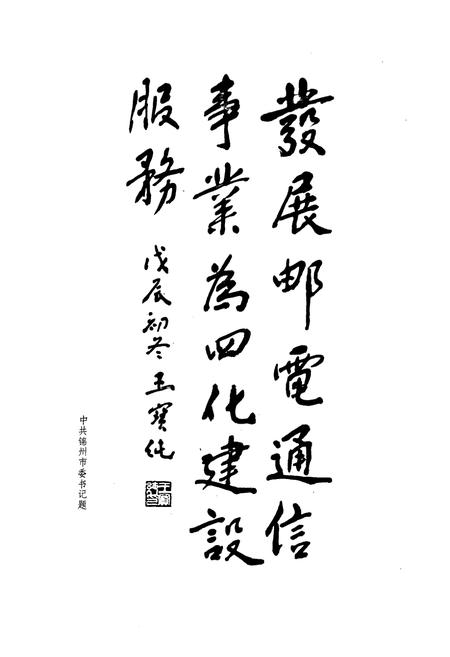 發展邮電通信
事業為四化建設
服務
戊辰初冬 王寶純
中共锦州市委书记题